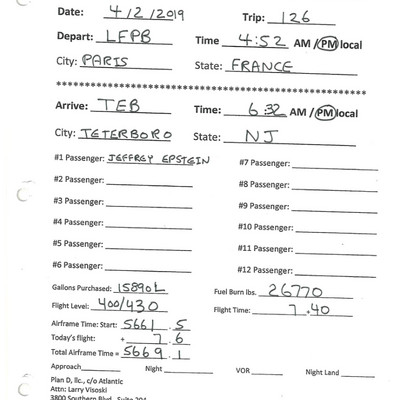 Date: 4/2/2019 Trip: 126
Depart: LFPB Time 4:52 AM/PM local
City: PARIS State: FRANCE
************************************************************
Arrive: TEB Time: 6:32 AM/PM local
City: TETERBORO State: NJ
#1 Passenger: JEFFREY EPSTEIN #7 Passenger:
#2 Passenger: #8 Passenger:
#3 Passenger: #9 Passenger:
#4 Passenger: #10 Passenger:
#5 Passenger: #11 Passenger:
#6 Passenger: #12 Passenger:
Gallons Purchased: 15890L Fuel Burn lbs. 26770
Flight Level: 400/430 Flight Time: 7.40
Airframe Time: Start: 5661.5
Today's flight: + 7.6
Total Airframe Time = 5669.1
Approach Night VOR Night Land
Plan D, llc., c/o Atlantic
Attn: Larry Visoski
3800 Southern Blvd., Suite 204